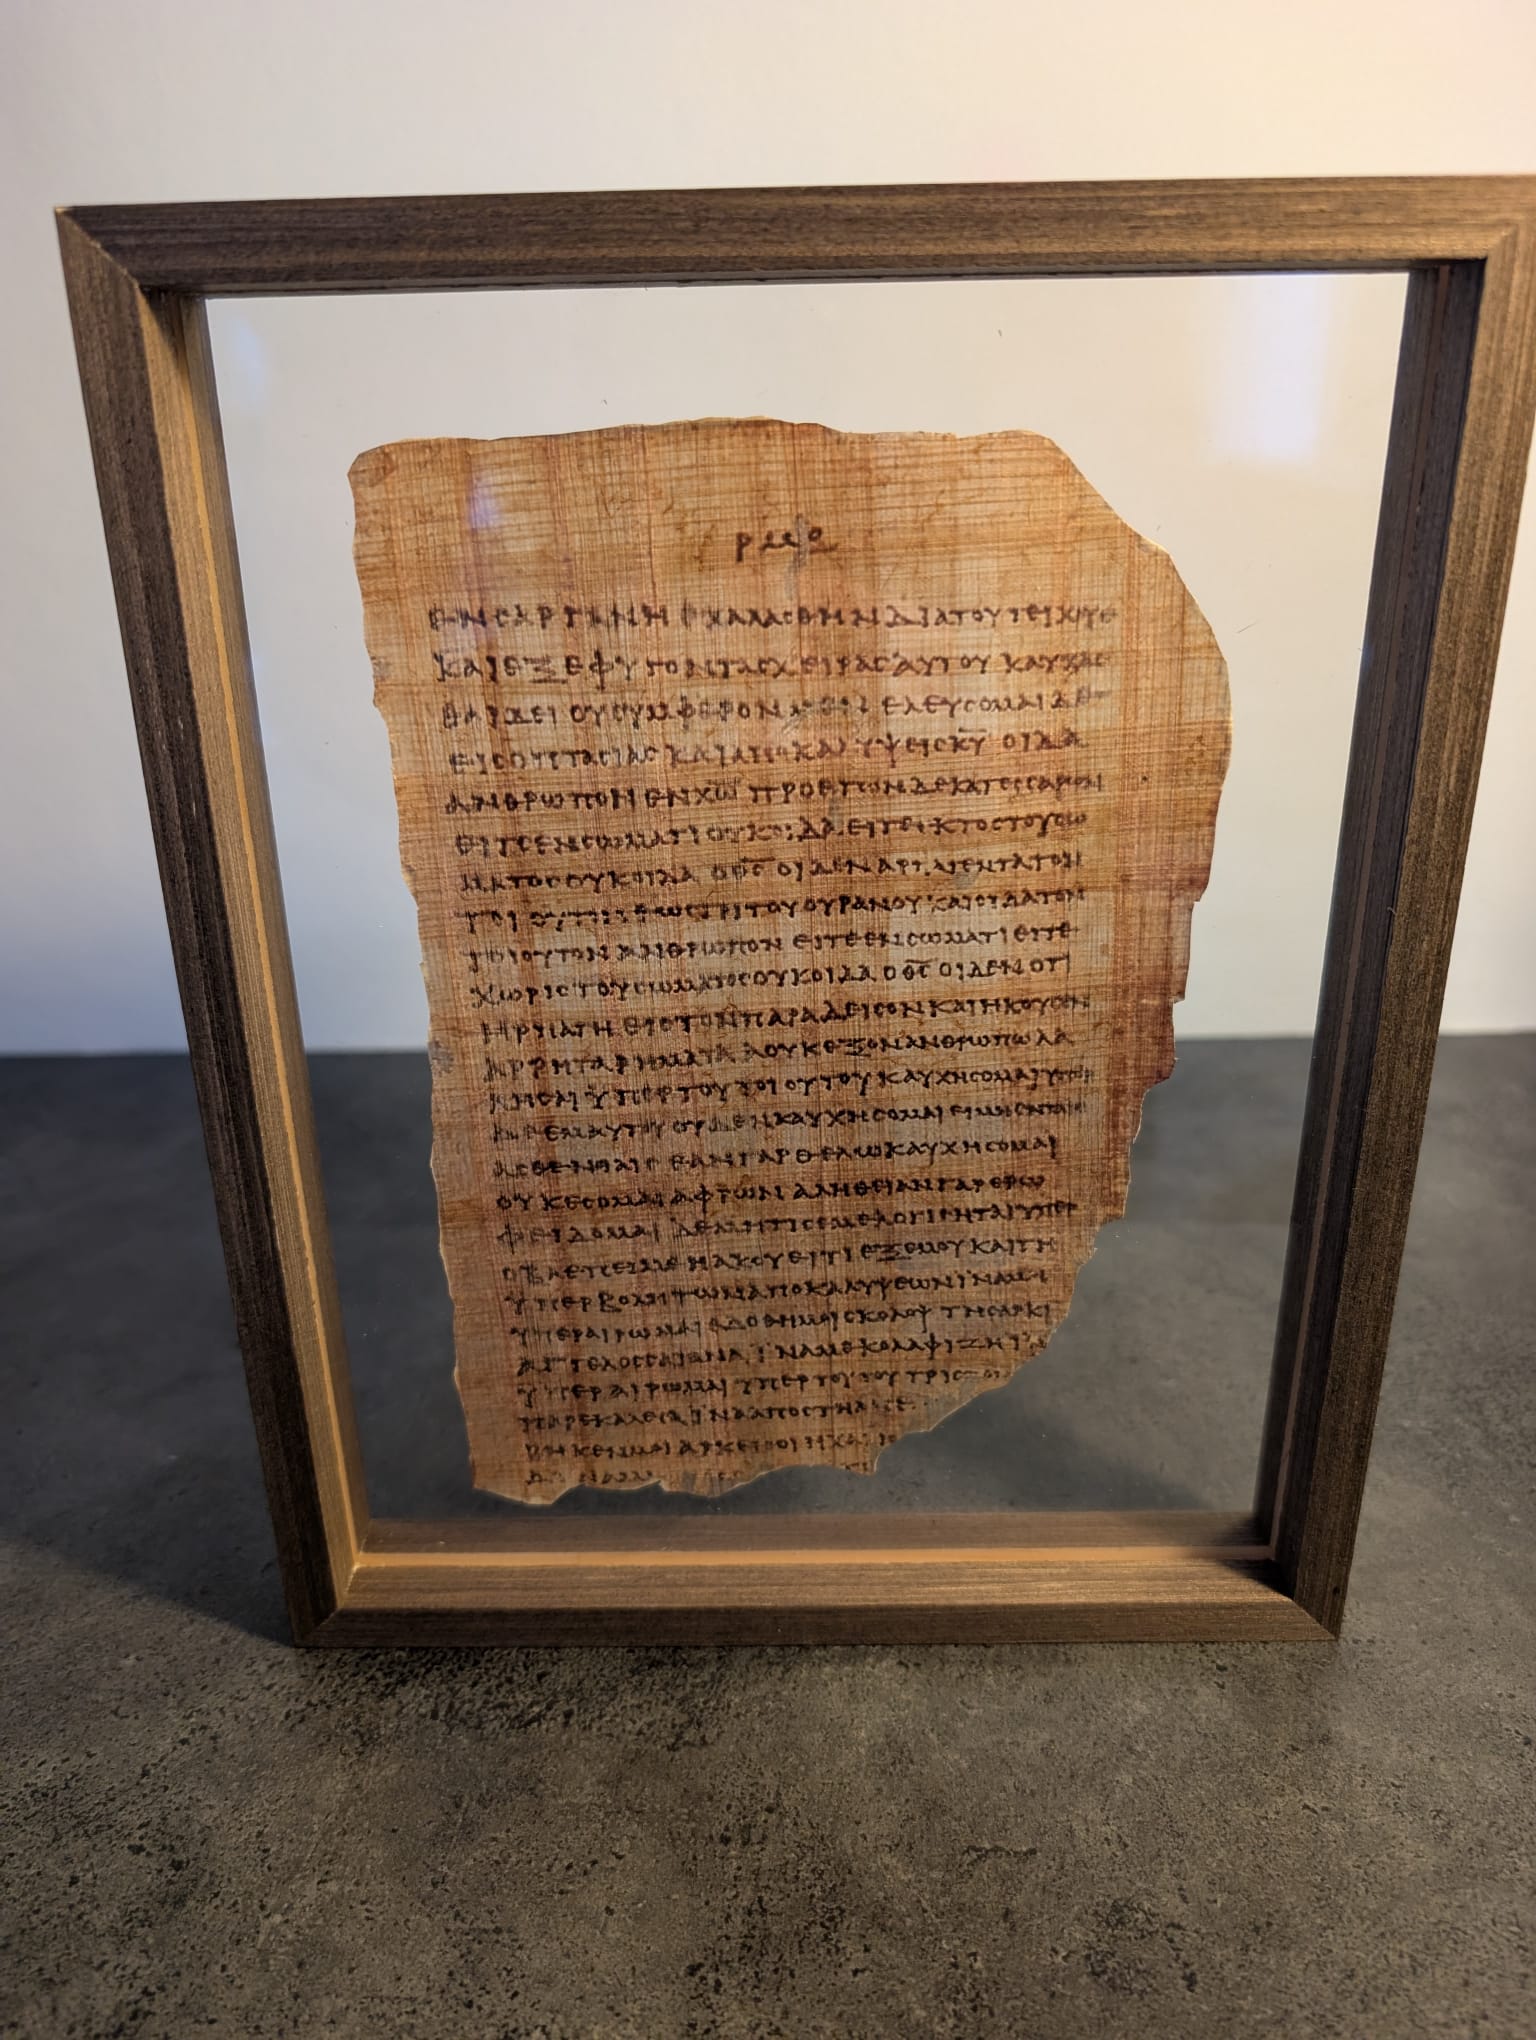 ΕΝϹΑΡΓΑΝΗΕΧΑΛΑϹΘΗΝΔΙΑΤΟΥΤΕΙΧΟΥϹ
ΚΑΙΕΞΕΦΥΓΟΝΤΑϹΧΕΙΡΑϹΑΥΤΟΥΚΑΥΧΑϹ
ΘΑΙΔΕΙΟΥϹΥΜΦΕΡΟΝ ΕΛΕΥϹΟΜΑΙΔΕ
ΕΙϹΟΠΤΑϹΙΑϹΚΑΙΑΠΟΚΑΛΥΨΕΙϹΚ̅Υ̅ ΟΙΔΑ
ΑΝΘΡΩΠΟΝΕΝΧ̅Ω̅ΠΡΟΕΤΩΝΔΕΚΑΤΕϹϹΑΡΩΝ
ΕΙΤΕΕΝϹΩΜΑΤΙΟΥΚΟΙΔΑΕΙΤΕΕΚΤΟϹΤΟΥϹΩ
ΜΑΤΟϹΟΥΚΟΙΔΑ ΟΘ̅Ϲ̅ΟΙΔΕΝΑΡΠΑΓΕΝΤΑΤΟΝ
ΤΟΙΟΥΤΟΝΕΩϹΤΡΙΤΟΥΟΥΡΑΝΟΥΚΑΙΟΙΔΑΤΟΝ
ΤΟΙΟΥΤΟΝΑΝΘΡΩΠΟΝ ΕΙΤΕΕΝϹΩΜΑΤΙΕΙΤΕ
ΧΩΡΙϹΤΟΥϹΩΜΑΤΟϹΟΥΚΟΙΔΑ ΟΘ̅Ϲ̅ΟΙΔΕΝΟΤΙ
ΗΡΠΑΓΗΕΙϹΤΟΝΠΑΡΑΔΕΙϹΟΝΚΑΙΗΚΟΥϹΕΝ
ΑΡΡΗΤΑΡΗΜΑΤΑΑΟΥΚΕΞΟΝΑΝΘΡΩΠΩΛΑ
ΛΗϹΑΙΥΠΕΡΤΟΥΤΟΙΟΥΤΟΥΚΑΥΧΗϹΟΜΑΙΥΠΕΡ
ΔΕΕΜΑΥΤΟΥΟΥΔΕΝΚΑΥΧΗϹΟΜΑΙΕΙΜΗΕΝΤΑΙϹ
ΑϹΘΕΝΕΙΑΙϹΕΑΝΓΑΡΘΕΛΩΚΑΥΧΗϹΟΜΑΙ
ΟΥΚΕϹΟΜΑΙΑΦΡΩΝ ΑΛΗΘΕΙΑΝΓΑΡΕΡΩ
ΦΕΙΔΟΜΑΙΔΕΜΗΤΙϹΕΜΕΛΟΓΙϹΗΤΑΙΥΠΕΡ
ΟΒΛΕΠΕΙΜΕΗΑΚΟΥΕΙΤΙΕΞΕΜΟΥΚΑΙΤΗ
ΥΠΕΡΒΟΛΗΤΩΝΑΠΟΚΑΛΥΨΕΩΝΙΝΑΜΗ
ΥΠΕΡΑΙΡΩΜΑΙΕΔΟΘΗΜΟΙϹΚΟΛΟΨΤΗϹΑΡΚΙ
ΑΓΓΕΛΟϹϹΑΤΑΝΑΙΝΑΜΕΚΟΛΑΦΙΖΗΙΝΑ
ΥΠΕΡΑΙΡΩΜΑΙΥΠΕΡΤΟΥΤΟΥΤΡΙϹ
ΠΑΡΕΚΑΛΕϹΑΙΝΑΑΠΟϹΤΗ
ΡΗΚΕΝΜΟΙΑΡΚΕΙϹΟΙΗΧΑΡΙϹ